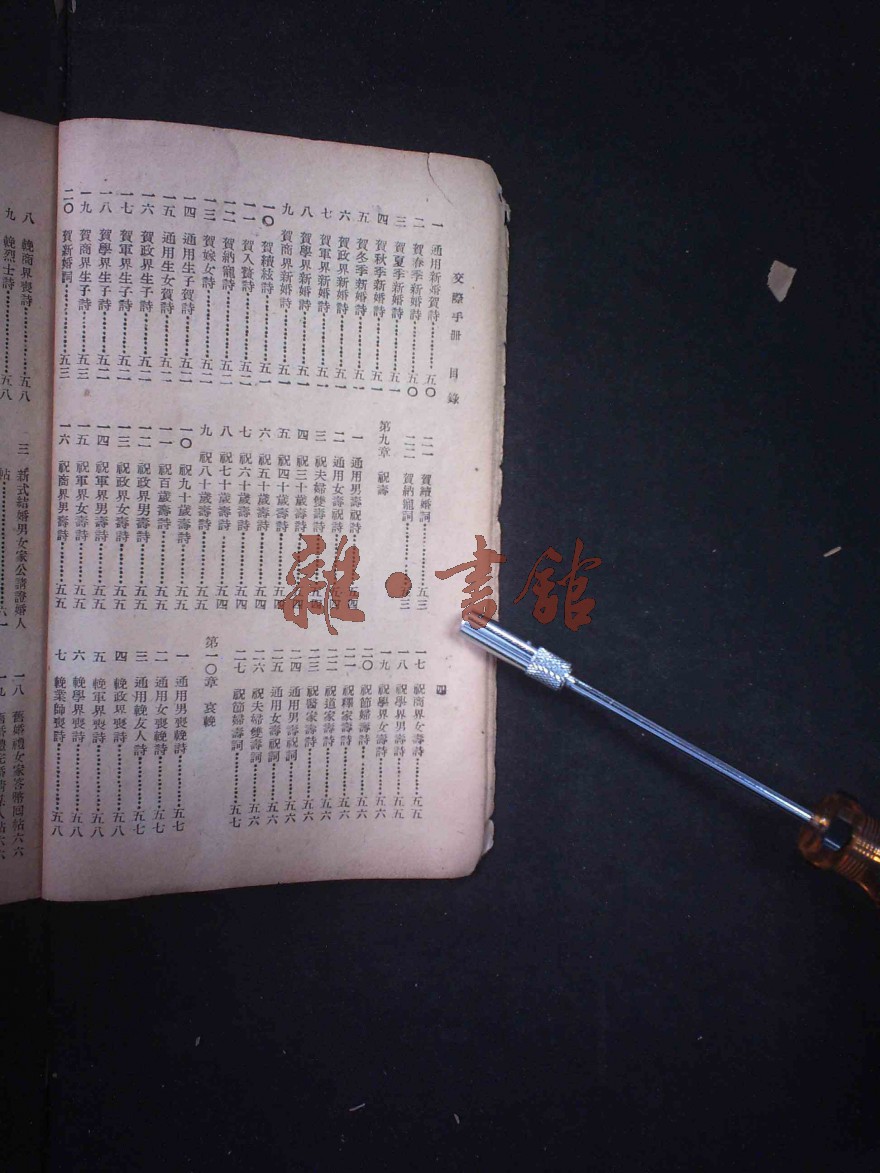 交際手册 目錄
一 通用新婚賀詩……五〇
二 賀春季新婚詩……五〇
三 賀夏季新婚詩……五一
四 賀秋季新婚詩……五一
五 賀冬季新婚詩……五一
六 賀政界新婚詩……五一
七 賀軍界新婚詩……五一
八 賀學界新婚詩……五一
九 賀商界新婚詩……五一
一〇 賀續絃詩……五一
一一 賀入贅詩……五二
一二 賀納寵詩……五二
一三 賀嫁女詩……五二
一四 通用生子賀詩……五二
一五 通用生女賀詩……五二
一六 賀政界生子詩……五二
一七 賀軍界生子詩……五二
一八 賀學界生子詩……五二
一九 賀商界生子詩……五三
二〇 賀新婚詞……五三
二一 賀續婚詞……五三
二二 賀納寵詞……五三
第九章 祝壽
一 通用男壽祝詩……五四
二 通用女壽祝詩……五四
三 祝夫婦雙壽詩……五四
四 祝三十歲壽詩……五四
五 祝四十歲壽詩……五四
六 祝五十歲壽詩……五四
七 祝六十歲壽詩……五四
八 祝七十歲壽詩……五四
九 祝八十歲壽詩……五五
一〇 祝九十歲壽詩……五五
一一 祝百歲壽詩……五五
一二 祝政界男壽詩……五五
一三 祝政界女壽詩……五五
一四 祝軍界男壽詩……五五
一五 祝軍界女壽詩……五五
一六 祝商界男壽詩……五五
四
一七 祝商界女壽詩……五五
一八 祝學界男壽詩……五五
一九 祝學界女壽詩……五六
二〇 祝節婦壽詩……五六
二一 祝釋家壽詩……五六
二二 祝道家壽詩……五六
二三 祝醫家壽詩……五六
二四 通用男壽祝詞……五六
二五 通用女壽祝詞……五六
二六 祝夫婦雙壽詞……五六
二七 祝節婦壽詞……五七
第一〇章 哀輓
一 通用男喪輓詩……五七
二 通用女喪輓詩……五七
三 通用輓友人詩……五七
四 輓政界喪詩……五八
五 輓軍界喪詩……五八
六 輓學界喪詩……五八
七 輓業師喪詩……五八
八 輓商界喪詩……五八
九 輓烈士詩……五八
三 新式結婚男女家公請證婚人
帖……六一
一八 舊婚禮女家答幣回帖六六
雜·書館